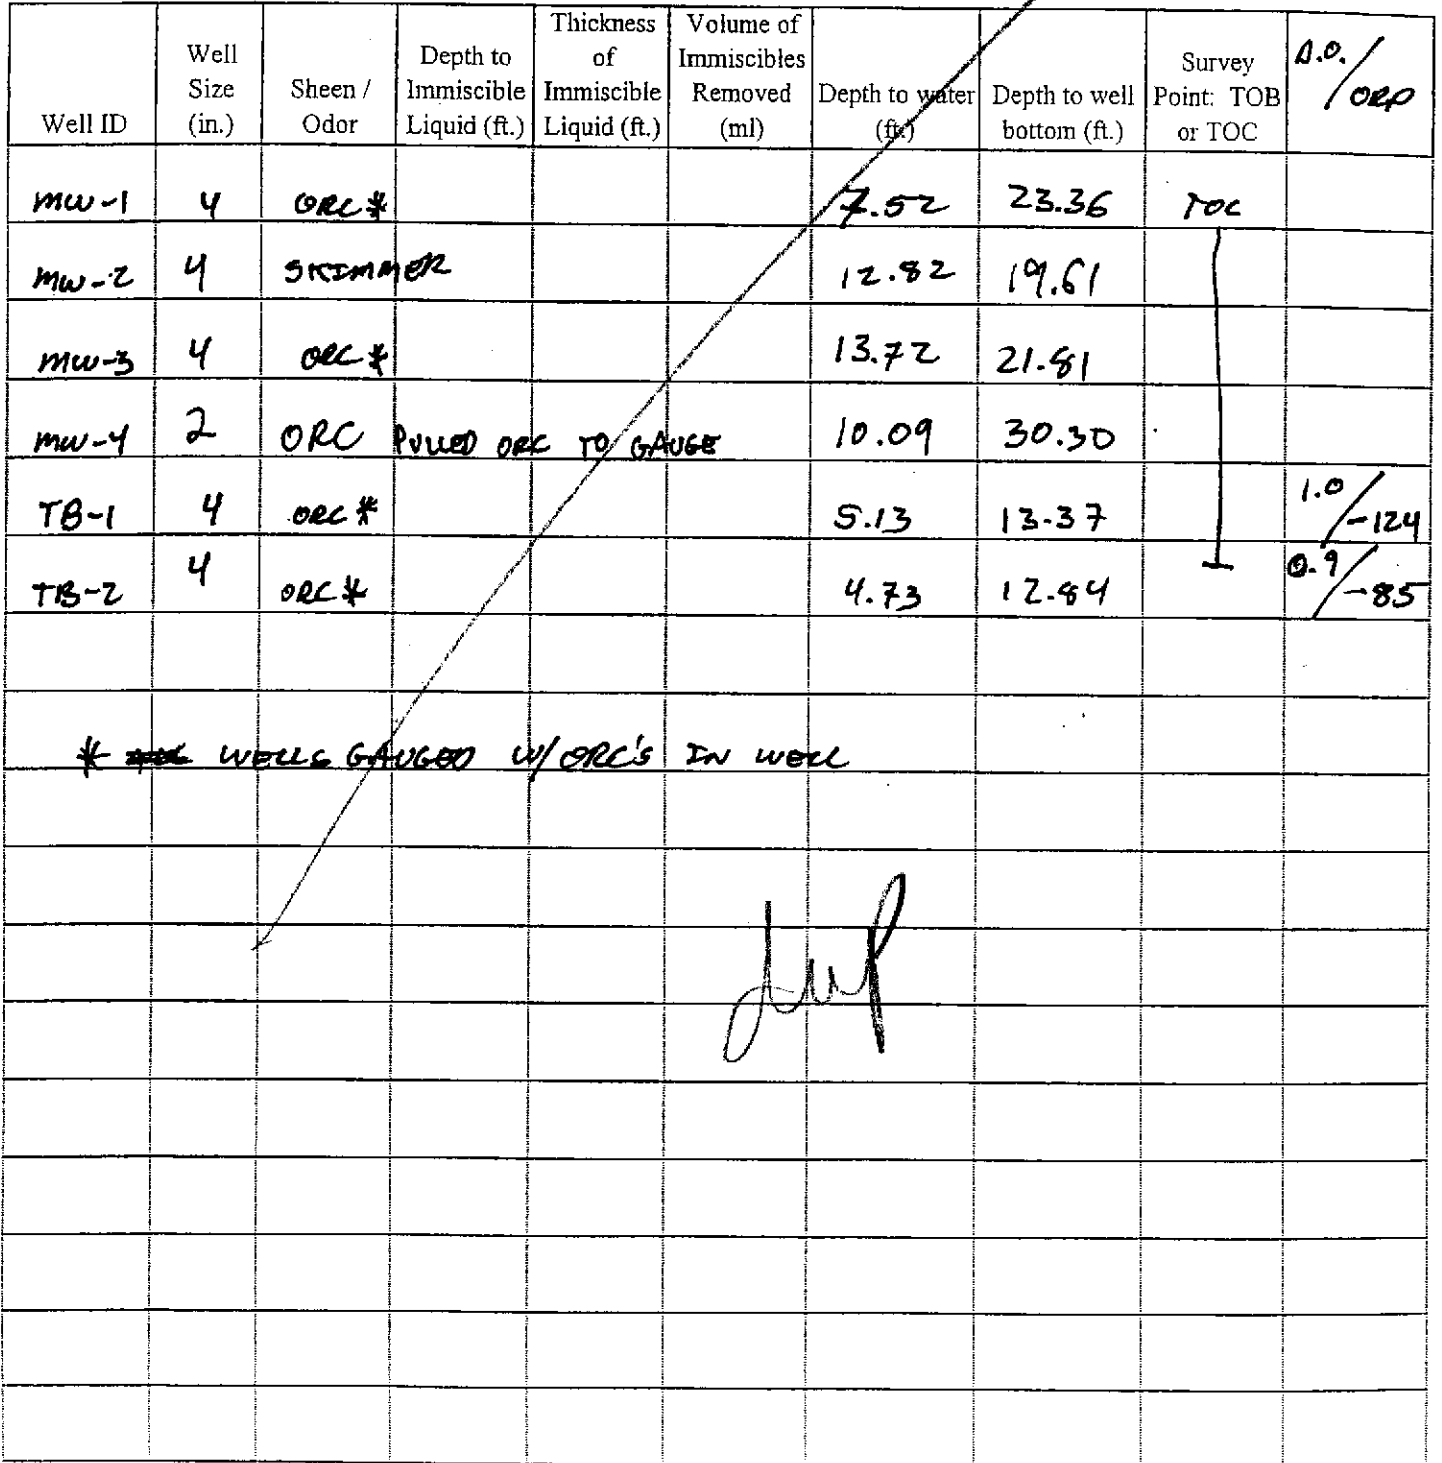 Well ID | Well Size (in.) | Sheen / Odor | Depth to Immiscible Liquid (ft.) | Thickness of Immiscible Liquid (ft.) | Volume of Immiscibles Removed (ml) | Depth to water (ft.) | Depth to well bottom (ft.) | Survey Point: TOB or TOC | D.O. / ORP
MW-1 4 ORC* 7.52 23.36 TOC
MW-2 4 SKIMMER 12.82 19.61
MW-3 4 ORC* 13.72 21.81
MW-4 2 ORC PULLED ORC TO GAUGE 10.09 30.30
TB-1 4 ORC* 5.13 13.37 1.0/-124
TB-2 4 ORC* 4.73 12.84 0.9/-85
* WELLS GAUGED W/ ORC'S IN WELL